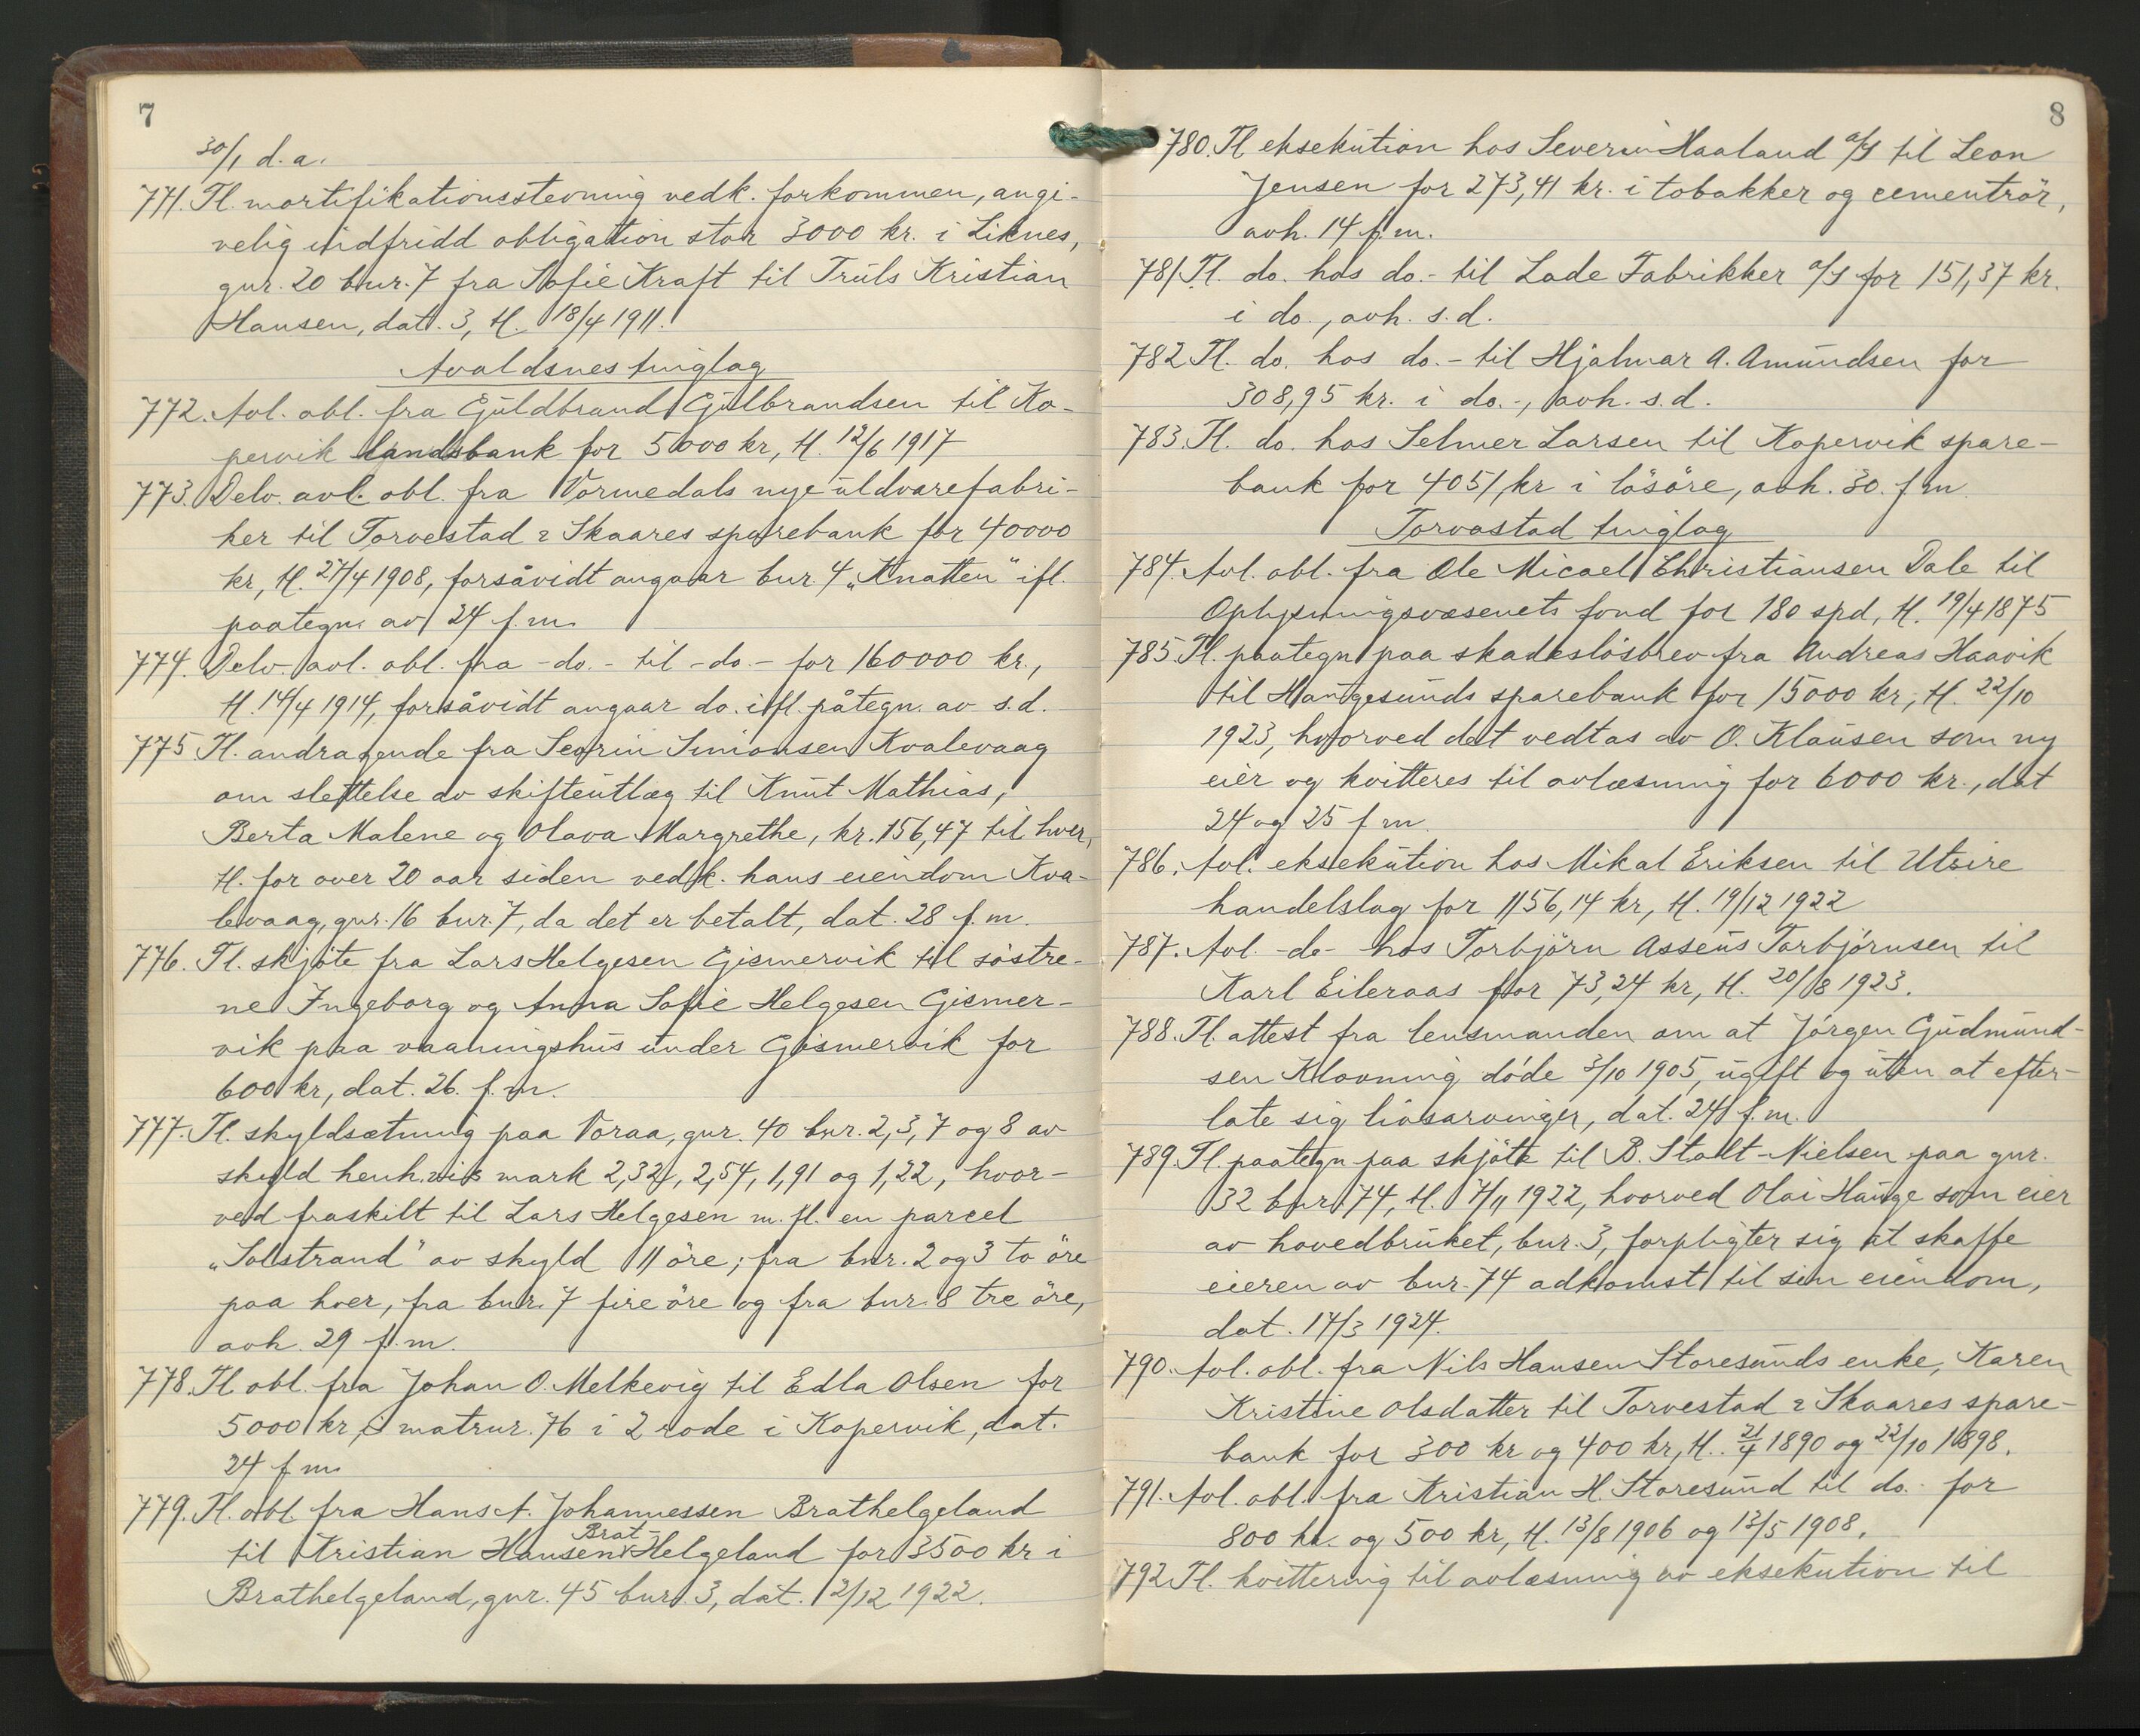 7
30/1 d. a.
771. Tl. mortifikationsstevning vedk. forkommen, angi-
velig indfridd obligation stor 3000 kr. i Liknes,
gnr. 20 bnr. 7 fra Sofie Kraft til Truls Kristian
Hansen, dat. 3, tl. 18/4 1911.
Avaldsnes tinglag
772. Avl. obl. fra Guldbrand Gulbrandsen til Ko-
pervik landsbank for 5000 kr, tl. 12/6 1917
773. Delv. avl. obl. fra Vormedals nye uldvarefabri-
ker til Torvestad & Skaares sparebank for 40000
kr, tl. 27/4 1908, forsåvidt angaar bnr. 4 „Knatten" ifl.
paategn. av 24 f. m.
774. Delv. avl. obl. fra -do.- til -do.- for 160000 kr.,
tl. 14/4 1914, forsåvidt angaar do. ifl. påtegn. av s. d.
775 Tl. andragende fra Severin Simonsen Kvalevaag
om slettelse av skifteutlæg til Knut Mathias,
Berta Malene og Olava Margrethe, kr. 156,47 til hver,
tl. for over 20 aar siden vedk. hans eiendom Kva-
levaag, gnr. 16 bnr. 7, da det er betalt, dat. 28 f. m.
776. Tl. skjöte fra Lars Helgesen Gismervik til söstre-
ne Ingeborg og Anna Sofie Helgesen Gismer-
vik paa vaaningshus under Gismervik for
600 kr, dat. 26. f. m.
777. Tl. skyldsætning paa Voraa, gnr. 40 bnr. 2, 3, 7 og 8 av
skyld henh.vis mark 2,32, 2,54, 1,91 og 1,22, hvor-
ved fraskilt til Lars Helgesen m. fl. en parcel
„Solstrand" av skyld 11 öre; fra bnr. 2 og 3 to öre
paa hver, fra bnr. 7 fire öre og fra bnr. 8 tre öre,
avh. 29 f. m.
778. Tl obl. fra Johan O. Melkevig til Edla Olsen for
5000 kr, i matrnr. 76 i 2 rode i Kopervik, dat.
24 f m.
779. Tl. obl. fra Hans A. Johannessen Brathelgeland
til Kristian Hansen Brat-Helgeland for 3500 kr i
Brathelgeland, gnr. 45 bnr. 3, dat. 12/12 1922.
8
780. Tl eksekution hos Severin Haaland a/s til Leon
Jensen for 273,41 kr. i tobakker og cementrör,
avh. 14 f. m.
781. Tl. do. hos do.- til Lade Fabrikker a/s for 151,37 kr.
i do., avh. s. d.
782 Tl. do. hos do.- til Hjalmar A. Amundsen for
308,95 kr. i do.-, avh. s. d.
783. Tl. do. hos Selmer Larsen til Kopervik spare-
bank for 4051 kr i lösöre, avh. 30. f m.
Torvastad tinglag
784. Avl. obl. fra Ole Micael Christiansen Dale til
Oplysningsvæsenets fond for 180 spd, tl. 19/4 1875
785 Tl. paategn paa skadeslösbrev fra Andreas Haavik
til Haugesunds sparebank for 15000 kr, tl. 22/10
1923, hvorved det vedtas av O. Klausen som ny
eier og kvitteres til avlæsning for 6000 kr., dat
24 og 25 f m.
786. Avl. eksekution hos Mikal Eriksen til Utsire
handelslag for 1156,14 kr, tl. 19/12 1922
787. Avl. -do- hos Torbjörn Assens Torbjörnsen til
Karl Eileraas for 73,24 kr, tl. 20/8 1923.
788. Tl. attest fra lensmanden om at Jörgen Gudmund-
sen Klovning döde 3/10 1905, ugift og uten at efter-
late sig livsarvinger, dat. 24 f. m.
789. Tl. paategn paa skjöte til B. Stolt-Nielsen paa gnr.
32 bnr 74, tl. 7/11 1922, hvorved Olai Hauge som eier
av hovedbruket, bnr. 3, forpligter sig at skaffe
eieren av bnr. 74 adkomst til sin eiendom,
dat. 17/3 1924.
790. Avl. obl. fra Nils Hansen Storesunds enke, Karen
Kristine Olsdatter til Torvestad & Skaares spare-
bank for 300 kr og 400 kr, tl. 21/4 1890 og 22/10 1898.
791. Avl. obl. fra Kristian H. Storesund til do. for
800 kr. og 500 kr, tl. 13/8 1906 og 13/5 1908.
792 Tl. kvittering til avlæsning av eksekution til